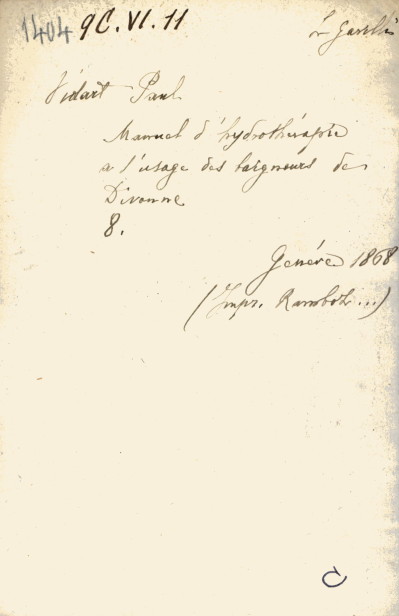 1404 9C.VI.11
Vidart Paul
Manuel d'hydrothérapie
a l'usage des baigneurs de
Divonne
8.
Genève 1868
(Impr. Ramboz...)
C